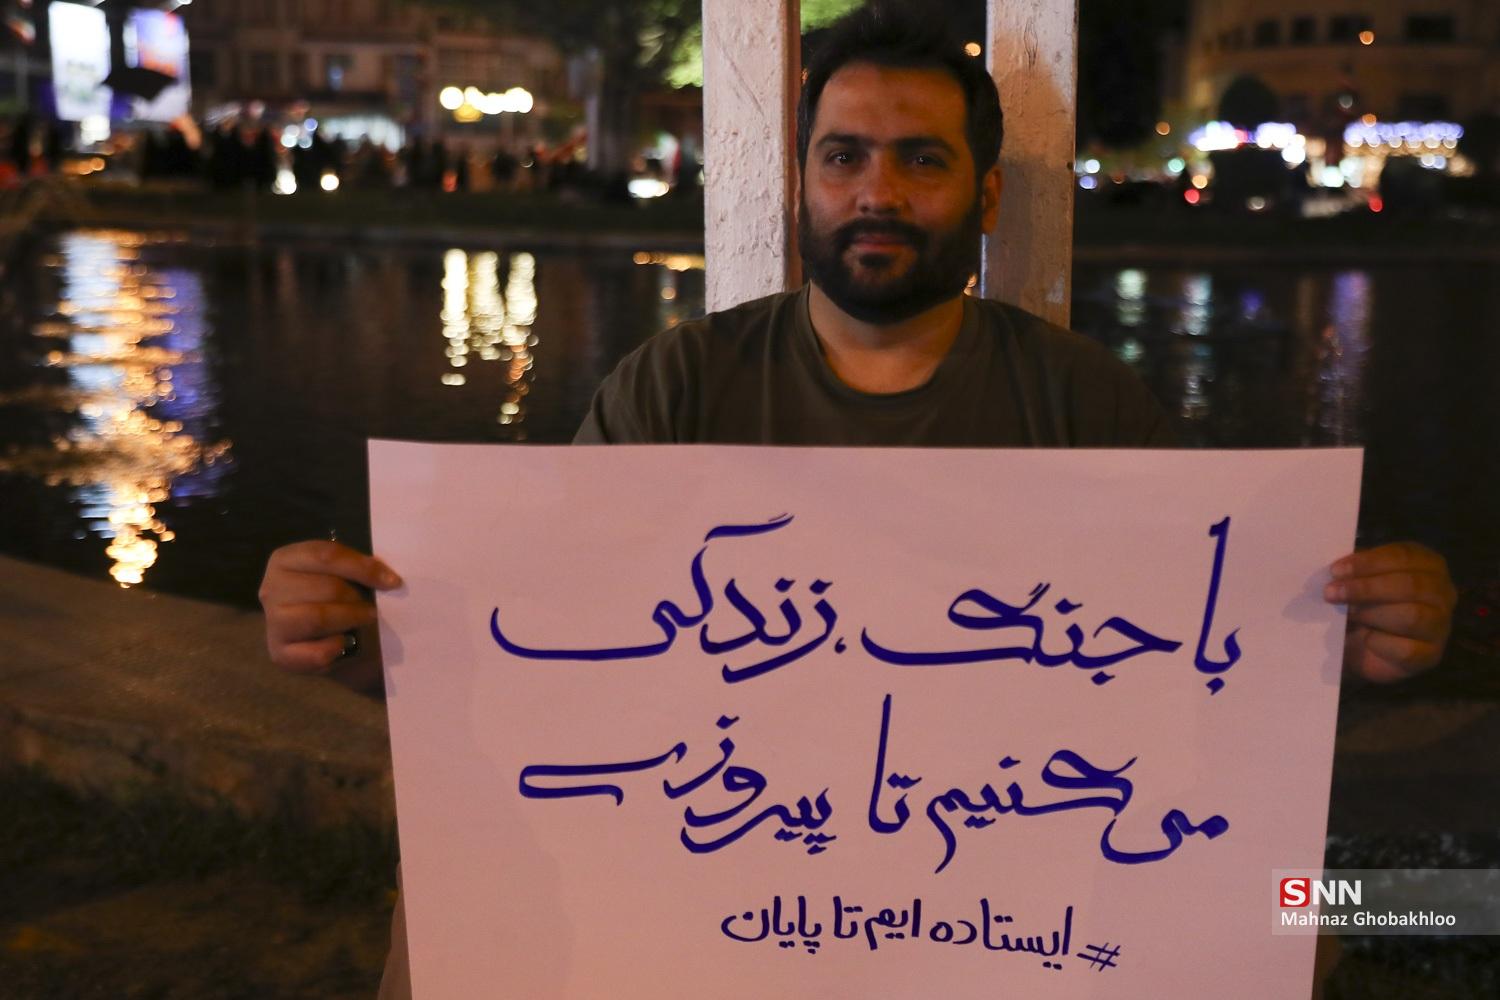 با جنگ، زندگی
می‌کنیم تا پیروزی
#ایستاده ایم تا پایان
SNN
Mahnaz Ghobakhloo